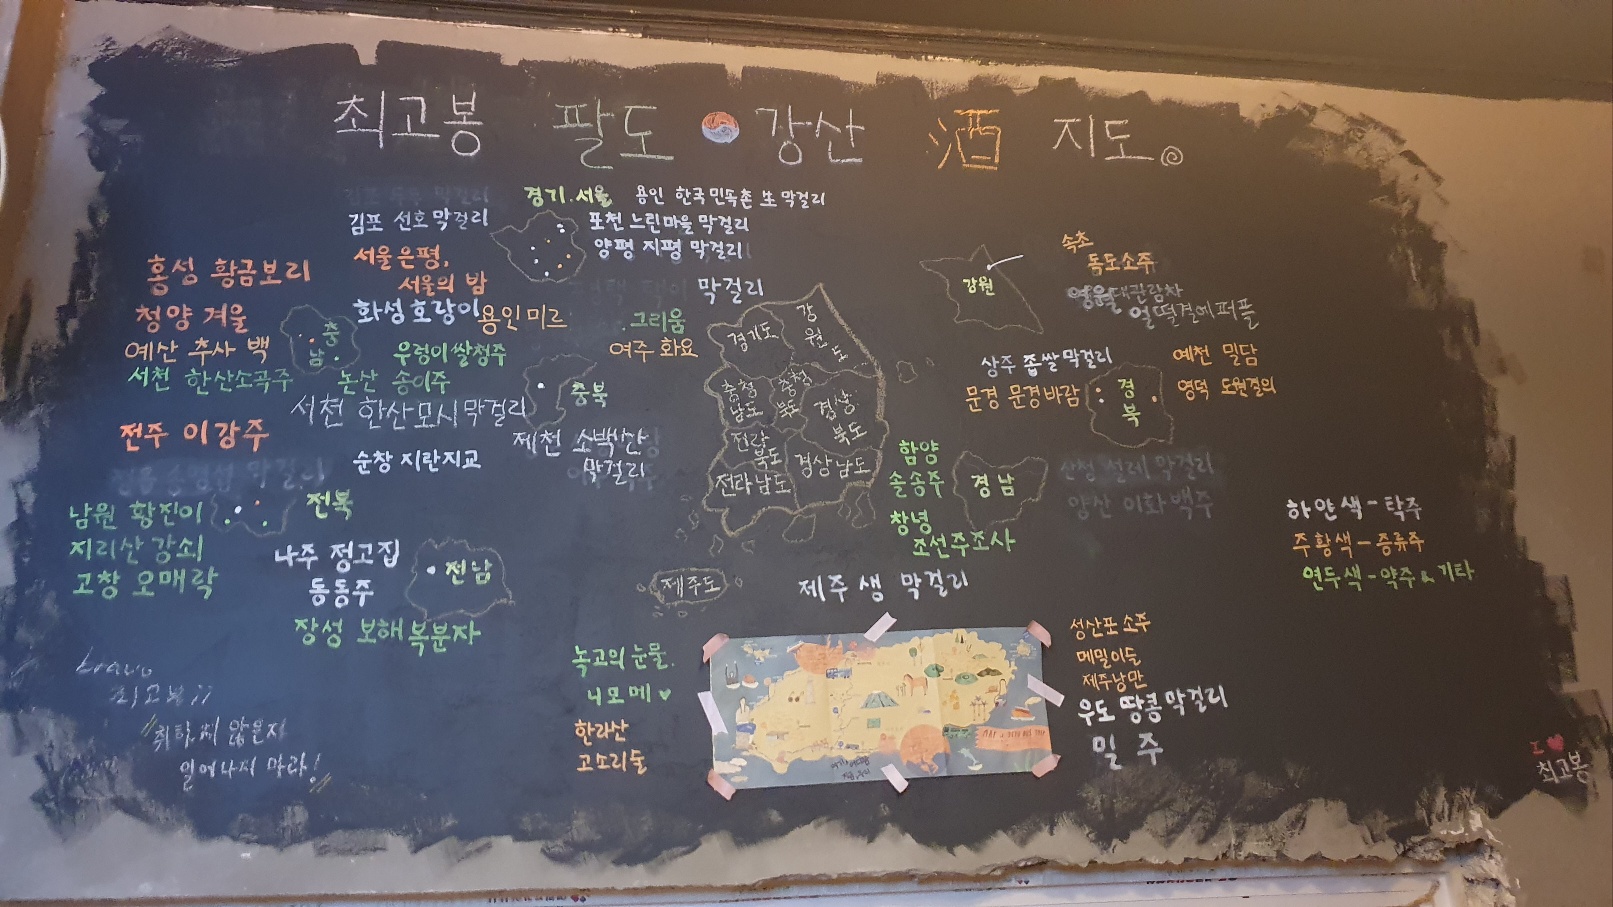 최고봉 팔도 강산 酒 지도
경기.서울
용인 한국민속촌 生 막걸리
김포 선호 막걸리
포천 느린마을 막걸리
양평 지평 막걸리
서울은평,
서울의 밤
막걸리
화성 호랑이
용인 미르
그리움
여주 화요
홍성 황금보리
청양 겨울
예산 추사 백
서천 한산소곡주
충남
우렁이쌀청주
논산 송이주
서천 한산모시막걸리
충북
제천 소백산
막걸리
전주 이강주
순창 지란지교
남원 황진이
지리산 강쇠
고창 오매락
전북
나주 정고집
동동주
전남
장성 보해복분자
경기도
강원도
충청남도
충청북도
경상북도
전라북도
전라남도
경상남도
제주도
강원
속초
독도소주
영월
대관람차
얼떨결에퍼플
상주 좁쌀막걸리
문경 문경바람
경북
예천 밀담
영덕 도원결의
함양
솔송주
창녕
조선주조사
경남
양산 이화백주
하얀색-탁주
주황색-증류주
연두색-약주&기타
제주 샘 막걸리
녹고의 눈물.
니모메♥
한라산
고소리술
성산포 소주
메밀이슬
제주낭만
우도 땅콩막걸리
밀 주
bravo
최고봉!!
"취하지 않은자
일어나지 마라!"
I ♥
최고봉